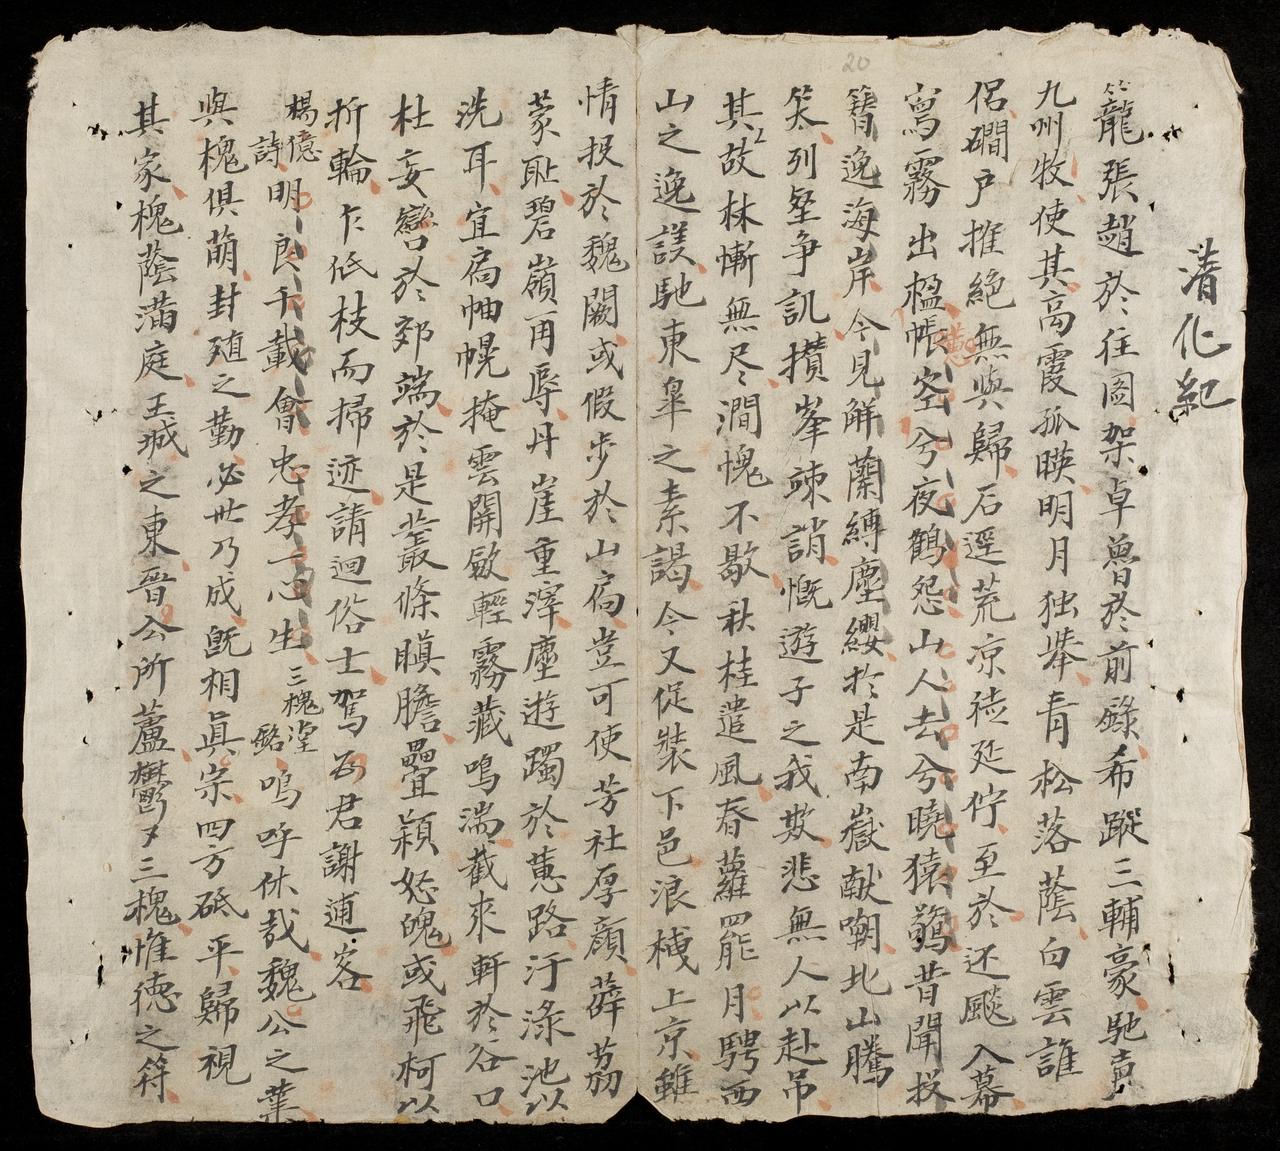 清化紀
籠張趙於往圖架卓魯於前錄希蹤三輔豪馳声
九州牧使其高霞孤暎明月独举青松落蔭白雲誰
侶磵户摧絕無與歸石逕荒凉徒延佇至於还飈入幕
寫霧出楹帳空兮夜鶴怨山人去兮曉猿驚昔聞投
簪逸海岸今見觧蘭縛塵纓於是南嶽献嘲北山騰
笑列壑争譏攅峯竦誚慨遊子之我欺悲無人以赴吊
其故林慚無尽澗愧不歇秋桂遣風春蘿罷月騁西
山之逸議馳東皐之素謁今又促装下邑浪栧上京雖
情投於魏闕或假步於山扃豈可使芳杜厚顔薜荔
蒙耻碧嶺再辱丹崖重滓塵遊躅於蕙路汙渌池以
洗耳宜扃岫幌掩雲關歛輕霧藏鳴湍截來軒於谷口
杜妄轡於郊端於是叢條瞋膽疊穎怒魄或飛柯以
折輪乍低枝而掃迹請迴俗士駕為君謝逋客
楊億詩明良千載會忠孝一心生三槐堂銘嗚呼休哉魏公之業
與槐俱萌封殖之勤必世乃成旣相真宗四方砥平歸視
其家槐蔭滿庭王城之東晋公所廬鬱〻三槐惟德之符
20